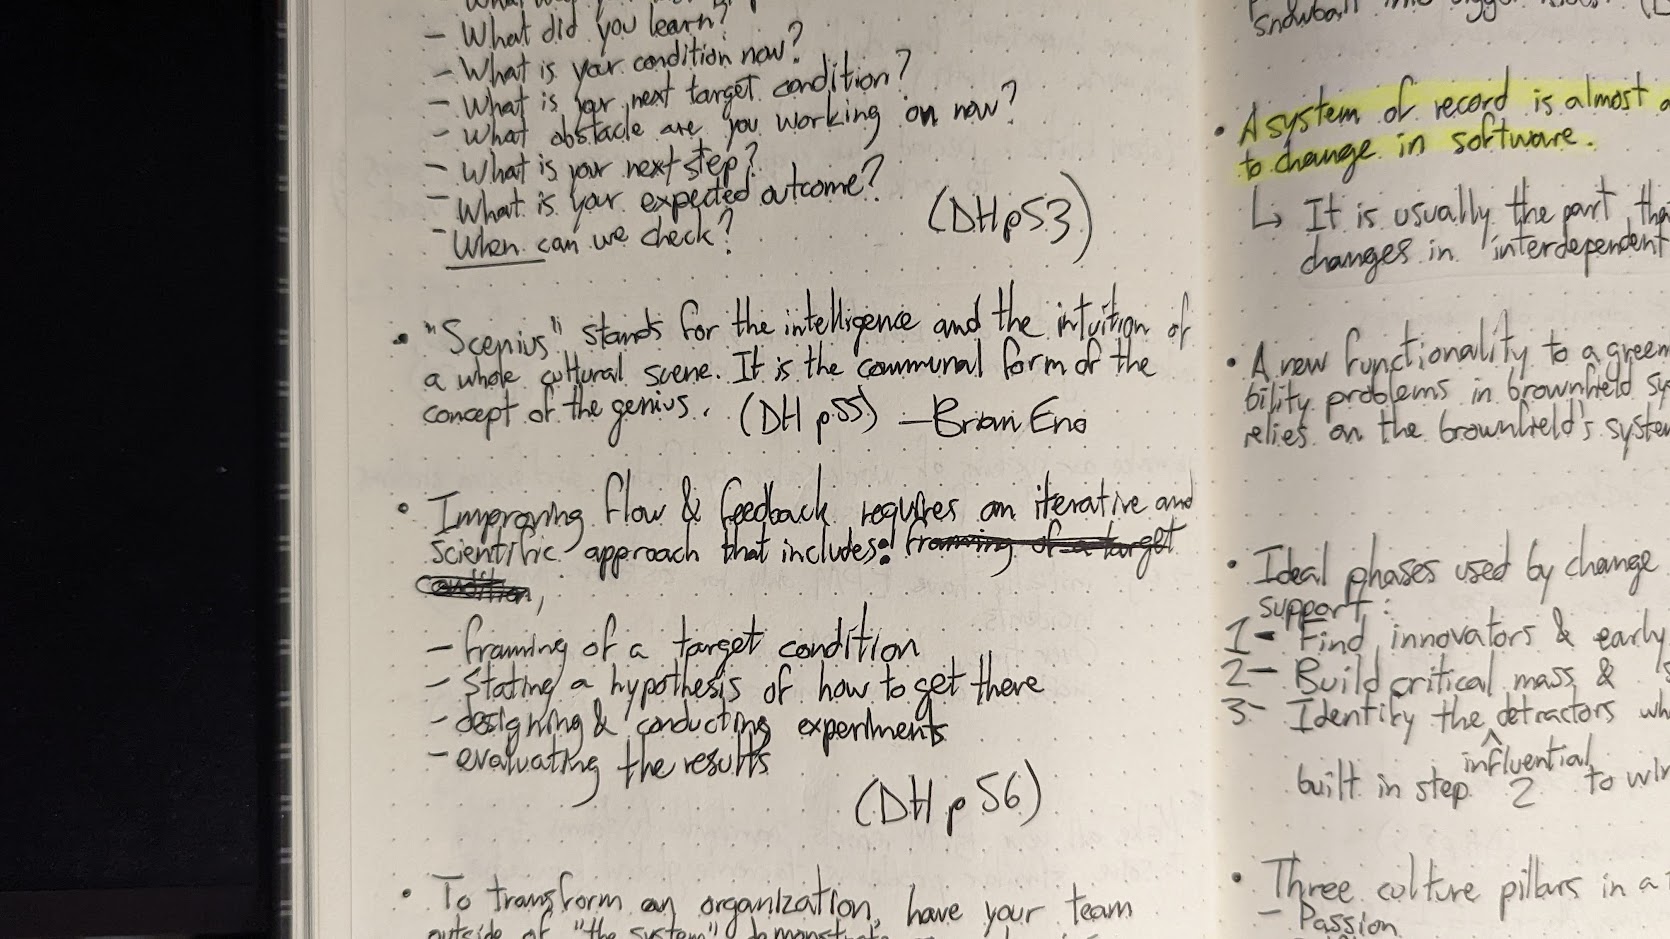 - What did you learn?
- What is your condition now?
- What is your next target condition?
- What obstacle are you working on now?
- What is your next step?
- What is your expected outcome?
- When can we check?
(DH p53)
• "Scenius" stands for the intelligence and the intuition of
a whole cultural scene. It is the communal form of the
concept of the genius. (DH p55) — Brian Eno
• Improving flow & feedback requires an iterative and
scientific approach that includes: framing of a target
condition,
- framing of a target condition
- Stating a hypothesis of how to get there
- designing & conducting experiments
- evaluating the results
(DH p 56)
• To transform an organization, have your team
outside of "the system"
snowball into bigger
• A system of record is almost
to change in software.
↳ It is usually the part
changes in interdependent
• A new functionality to a
bility problems in brownfield
relies on the brownfield's
• Ideal phases used by change
support:
1- Find innovators & early
2- Build critical mass &
3- Identify the detractors
influential
built in step 2 to
• Three culture pillars in a
- Passion